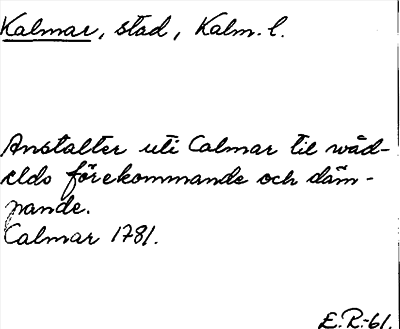 Kalmar, stad, Kalm. l.
Anstalter uti Calmar til wåd-
elds förekommande och däm-
pande.
Calmar 1781.
E.R.-61.